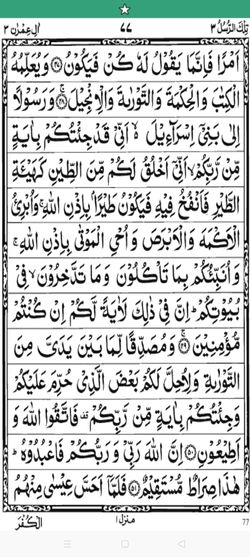 تِلْكَ الرُّسُلُ ٣ ٧٧ اٰلِ عِمْرٰن ٣
اَمْرًا فَاِنَّمَا يَقُوْلُ لَهٗ كُنْ فَيَكُوْنُ ﴿۴۷﴾ وَيُعَلِّمُهُ
الْكِتٰبَ وَالْحِكْمَةَ وَالتَّوْرٰىةَ وَالْاِنْجِيْلَ ﴿۴۸﴾ وَرَسُوْلًا
اِلٰى بَنِيْٓ اِسْرَآءِيْلَ ۙ اَنِّيْ قَدْ جِئْتُكُمْ بِاٰيَةٍ
مِّنْ رَّبِّكُمْ ۙ اَنِّيْٓ اَخْلُقُ لَكُمْ مِّنَ الطِّيْنِ كَهَيْـَٔةِ
الطَّيْرِ فَاَنْفُخُ فِيْهِ فَيَكُوْنُ طَيْرًۢا بِاِذْنِ اللّٰهِ ۚ وَاُبْرِئُ
الْاَكْمَهَ وَالْاَبْرَصَ وَاُحْيِ الْمَوْتٰى بِاِذْنِ اللّٰهِ ۚ
وَاُنَبِّئُكُمْ بِمَا تَاْكُلُوْنَ وَمَا تَدَّخِرُوْنَ ۙ فِيْ
بُيُوْتِكُمْ ۭ اِنَّ فِيْ ذٰلِكَ لَاٰيَةً لَّكُمْ اِنْ كُنْتُمْ
مُّؤْمِنِيْنَ ﴿۴۹﴾ وَمُصَدِّقًا لِّمَا بَيْنَ يَدَيَّ مِنَ
التَّوْرٰىةِ وَلِاُحِلَّ لَكُمْ بَعْضَ الَّذِيْ حُرِّمَ عَلَيْكُمْ
وَجِئْتُكُمْ بِاٰيَةٍ مِّنْ رَّبِّكُمْ ۣ فَاتَّقُوا اللّٰهَ وَ
اَطِيْعُوْنِ ﴿۵۰﴾ اِنَّ اللّٰهَ رَبِّيْ وَرَبُّكُمْ فَاعْبُدُوْهُ ۭ
هٰذَا صِرَاطٌ مُّسْتَقِيْمٌ ﴿۵۱﴾ فَلَمَّآ اَحَسَّ عِيْسٰى مِنْهُمُ
منزل ١ الْكُفْرَ
77